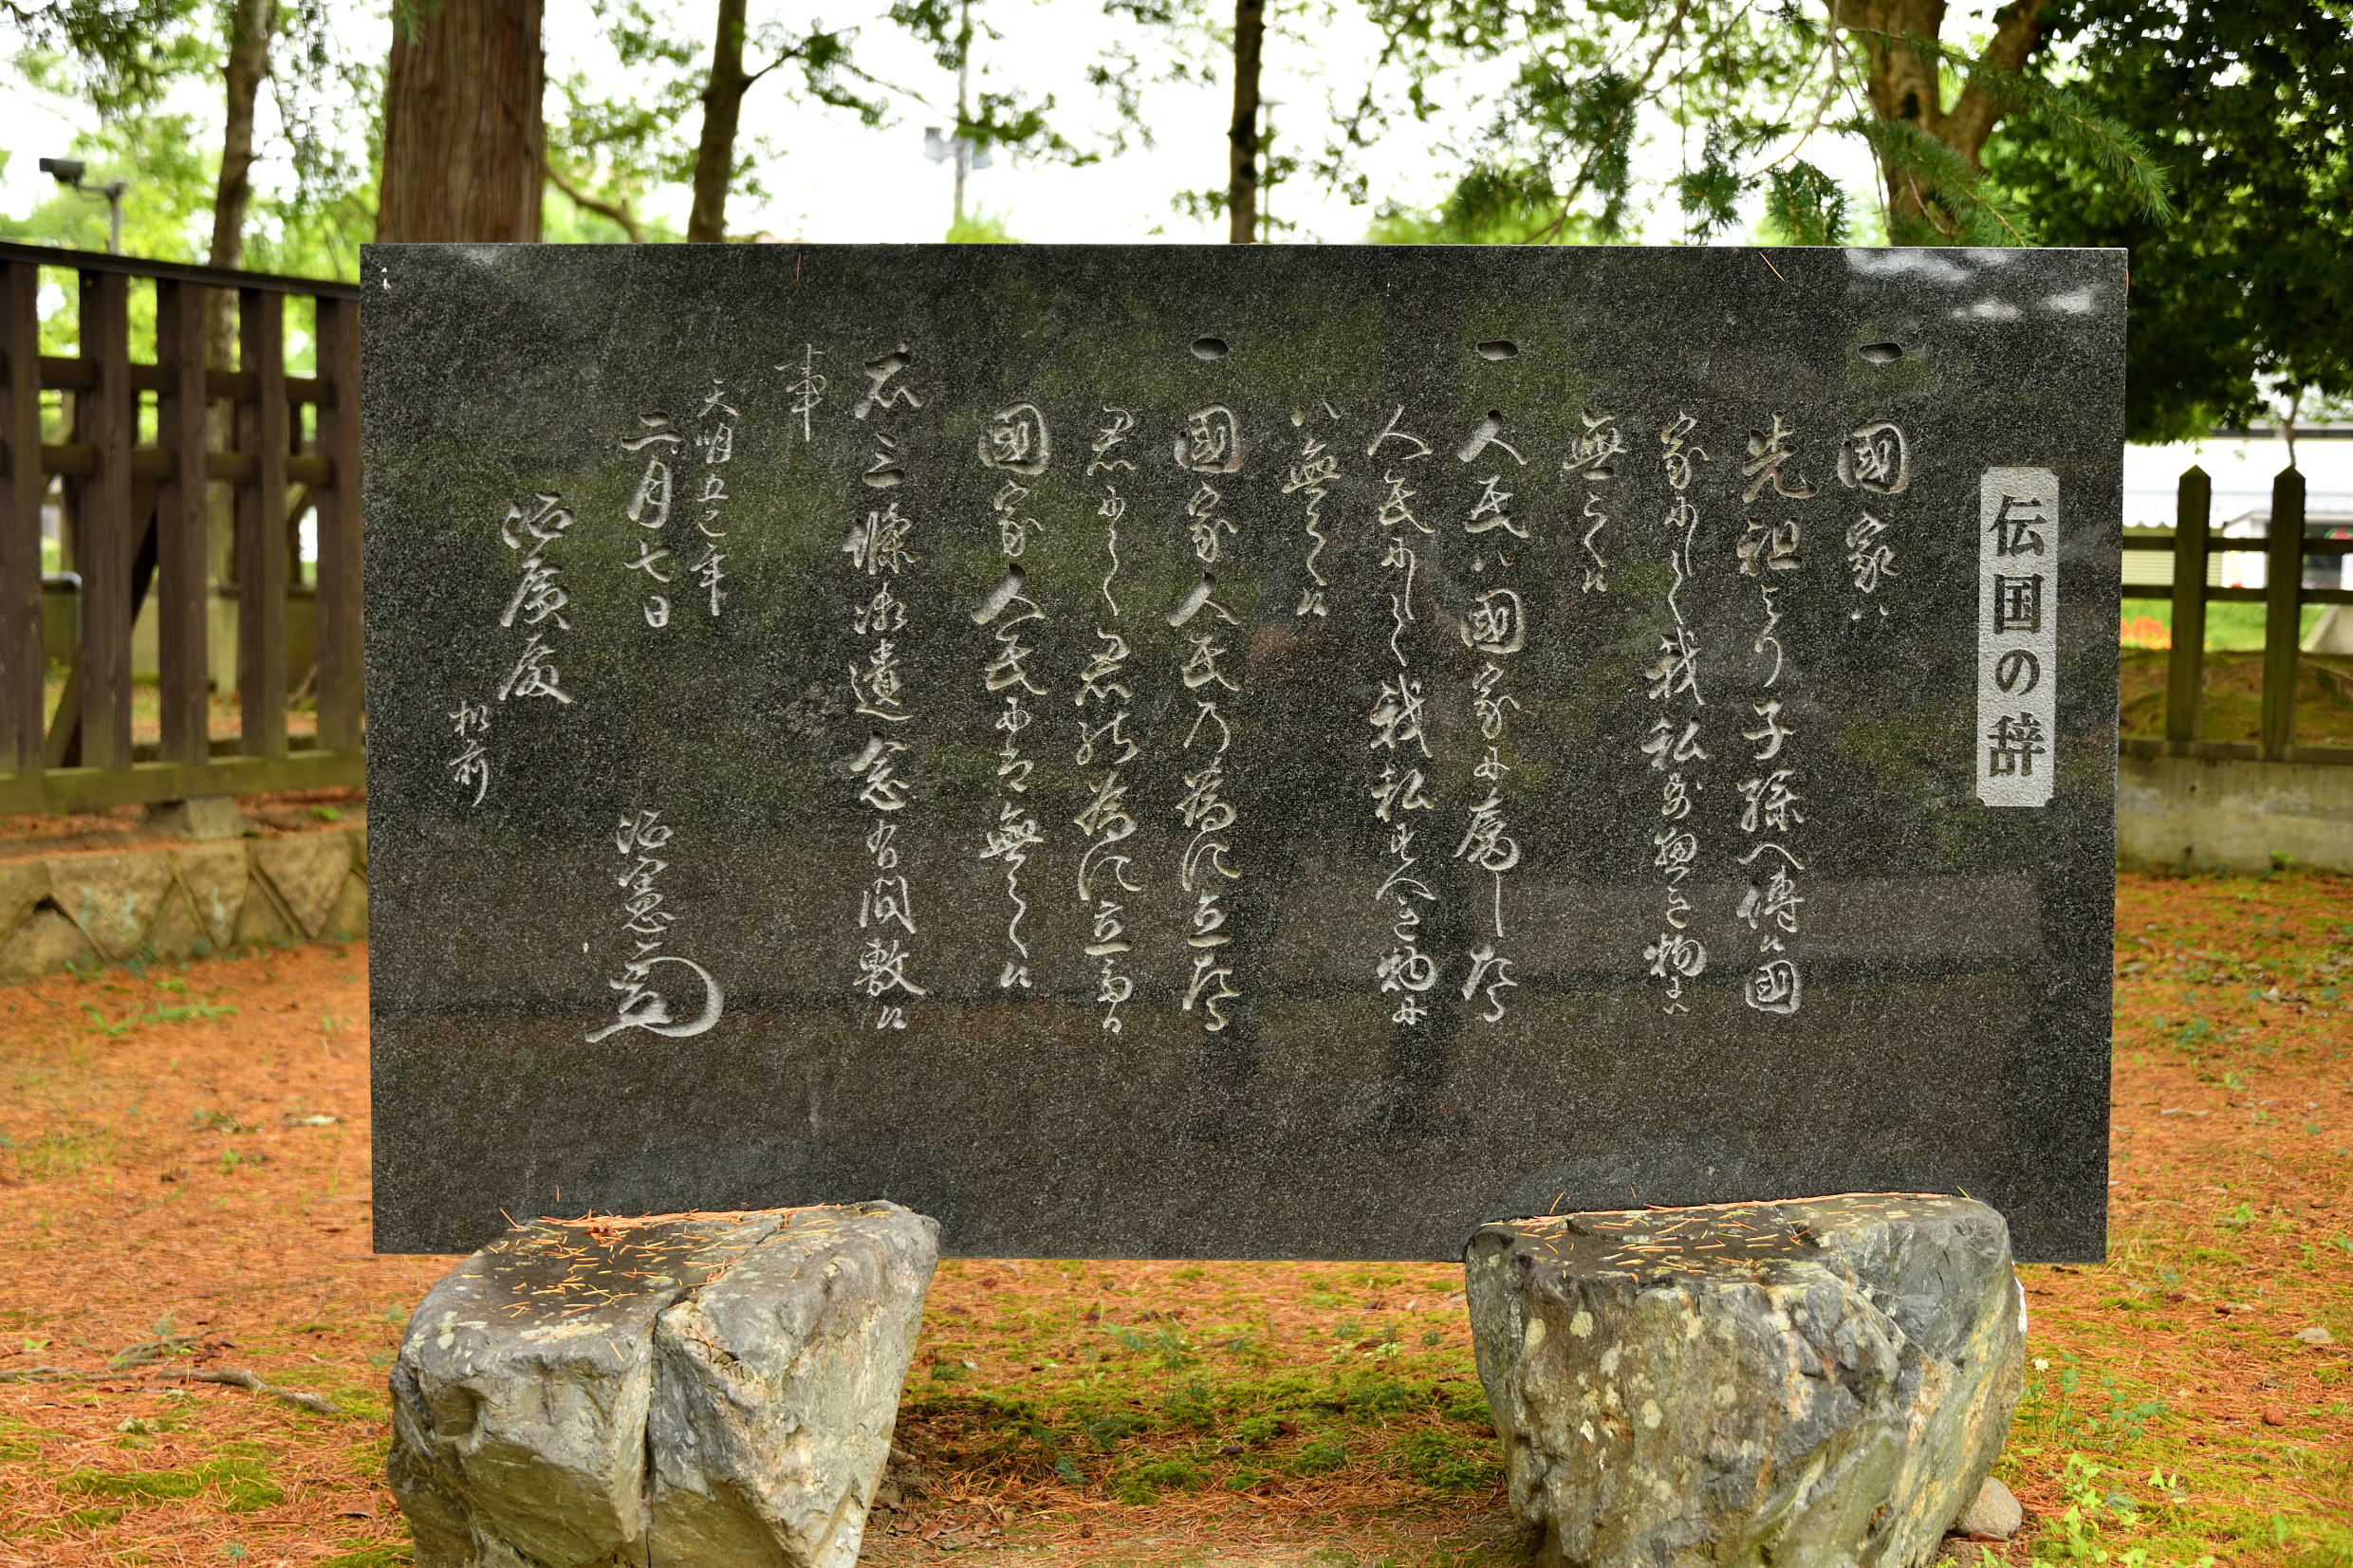 伝国の辞
一 國家ハ
先祖より子孫へ傳候國
家にして我私すへき物にハ
無之候
一 人民ハ國家に属したる
人民にして我私すへき物に
ハ無之候
一 國家人民の為に立たる
君にして君の為に立たる
國家人民にハ無之候
右三條御遺念有間敷候
事
天明五乙巳年
二月七日
治憲
治廣殿
机前